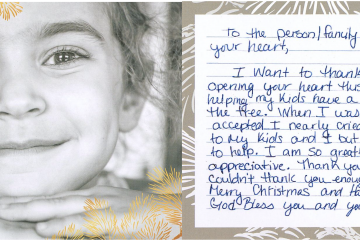 To the person/family
your heart,
I want to thank
opening your heart thus
helping my kids have a
the tree. When I was
accepted I nearly cried
to my kids and I but
to help. I am so grate
appreciative. Thank you
couldn't thank you enoug
Merry Christmas and Ha
God Bless you and you